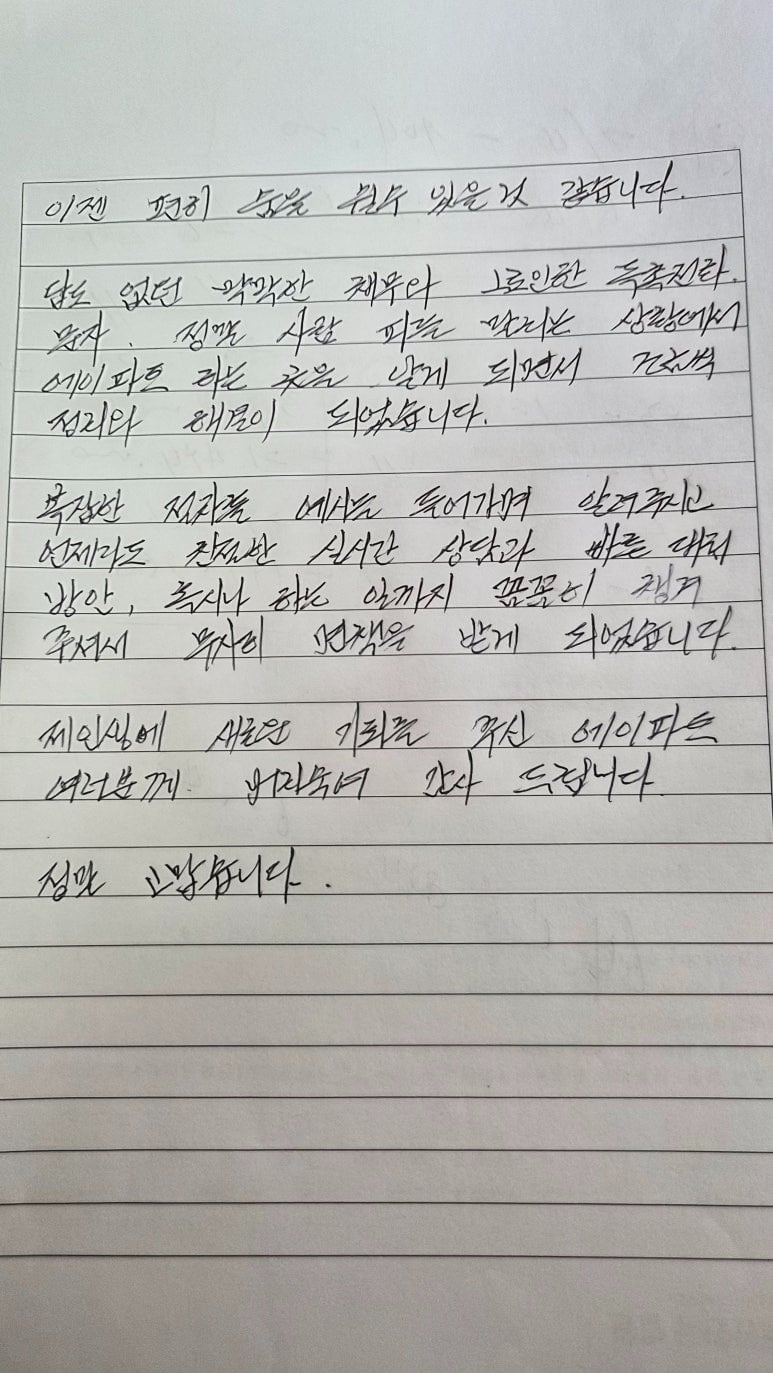 이젠 편히 숨을 쉴수 있을것 같습니다.
답도 없던 막막한 채무와 그로인한 독촉전화.
문자. 정말 사람 피를 말리는 상황에서
에이파트 라는 곳을 알게 되면서 금방
정리와 해결이 되었습니다.
복잡한 절차를 예시를 들어가며 알려주시고
언제라도 친절한 실시간 상담과 빠른 대처
방안, 혹시나 하는 일까지 꼼꼼히 챙겨
주셔서 무사히 면책을 받게 되었습니다.
제인생에 새로운 기회를 주신 에이파트
여러분께. 머리숙여 감사 드립니다.
정말 고맙습니다.